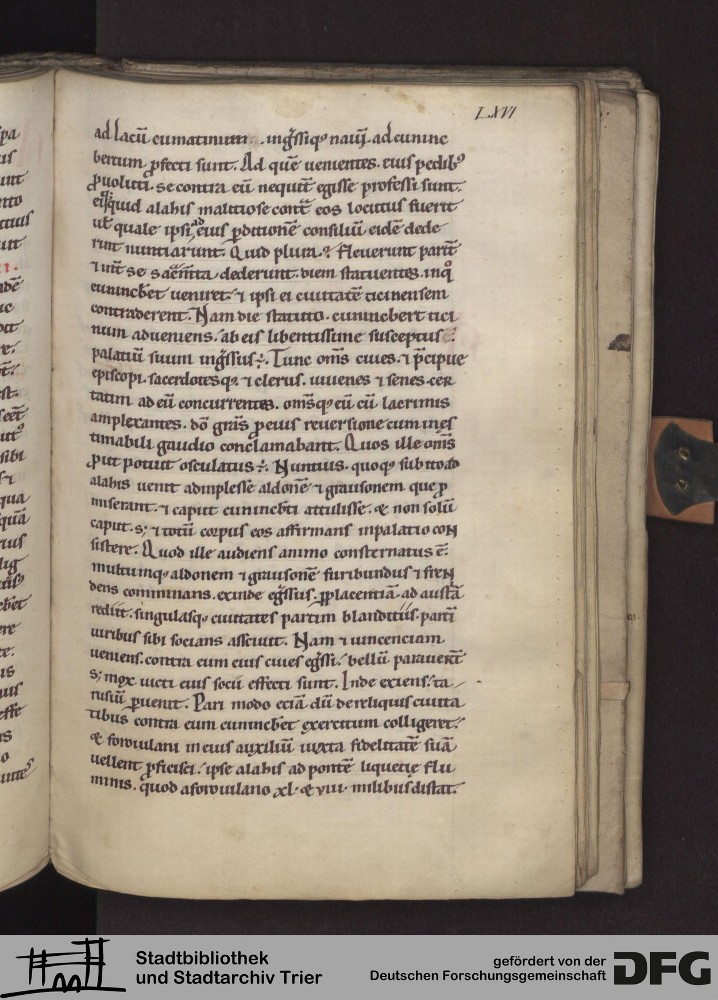 LXVI
ad lacū cumatinum. ingr̄ssiq; nauī ad cuninc
bertum ꝓfecti sunt. Ad quē uenientes. eius pedibꝰ
ꝓuoluti. se contra eū nequit̄ egisse professi sunt.
eiq; quid alahis malitiose cont̄ eos locutus fuerit
ut̄ quale ipsi ad eius ꝑditionē consiliū eidē dede
rint nuntiarunt. Quid plura? Fleuerunt parit̄
⁊ int̄ se sacm̄ta dederunt. diem statuentes. inqͦ
cunincb̄et ueniret. ⁊ ipsi ei ciuitatē ticinensem
contraderent. Nam die statuto. cunincbert tici
num adueniens. ab eis libentissime susceptus
palatiū suum ingr̄ssus ÷. Tunc om̄s ciues. ⁊ p̄cipue
episcopi. sacerdotesq; ⁊ clerus. iuuenes ⁊ senes. cer
tatim ad eū concurrentes. om̄sq; eū cū lacrimis
amplexantes. dō grās ꝓ eius reuersione cum ines
timabili gaudio conclamabant. Quos ille om̄s
ꝓut potuit osculatus ÷. Nuntius. quoq; subito ad
alahis uenit adinplesse aldonē ⁊ grausonem que ꝓ
miserant. ⁊ caput cunincb̄ti attulisse. & non solū
caput. s; ⁊ totū corpus eos affirmans inpalatio con
sistere. Quod ille audiens animo consternatus ē.
multumq; aldonem ⁊ grausonē furibundus ⁊ fren
dens comminans. exinde egr̄ssus. ꝑ placentiā ad austā
rediit. singulasq; ciuitates partim blanditiis. partī
uiribus sibi socians asciuit. Nam ⁊ uincenciam
ueniens. contra eum eius ciues egr̄ssi. bellū parauert̄
s; mox uicti eius socii effecti sunt. Inde exiens. ta
rusiū ꝑuenit. Pari modo eciā dū de reliquis ciuita
tibus contra eum cunincb̄et exercitum colligeret.
& foroiulani in eius auxiliū iuxta fidelitatē suā
uellent ꝓficisci. ipse alahis ad pontē liquetie flu
minis. quod a foroiulano xl. & viii. milibus distat.
Stadtbibliothek
und Stadtarchiv Trier
gefördert von der
Deutschen Forschungsgemeinschaft
DFG